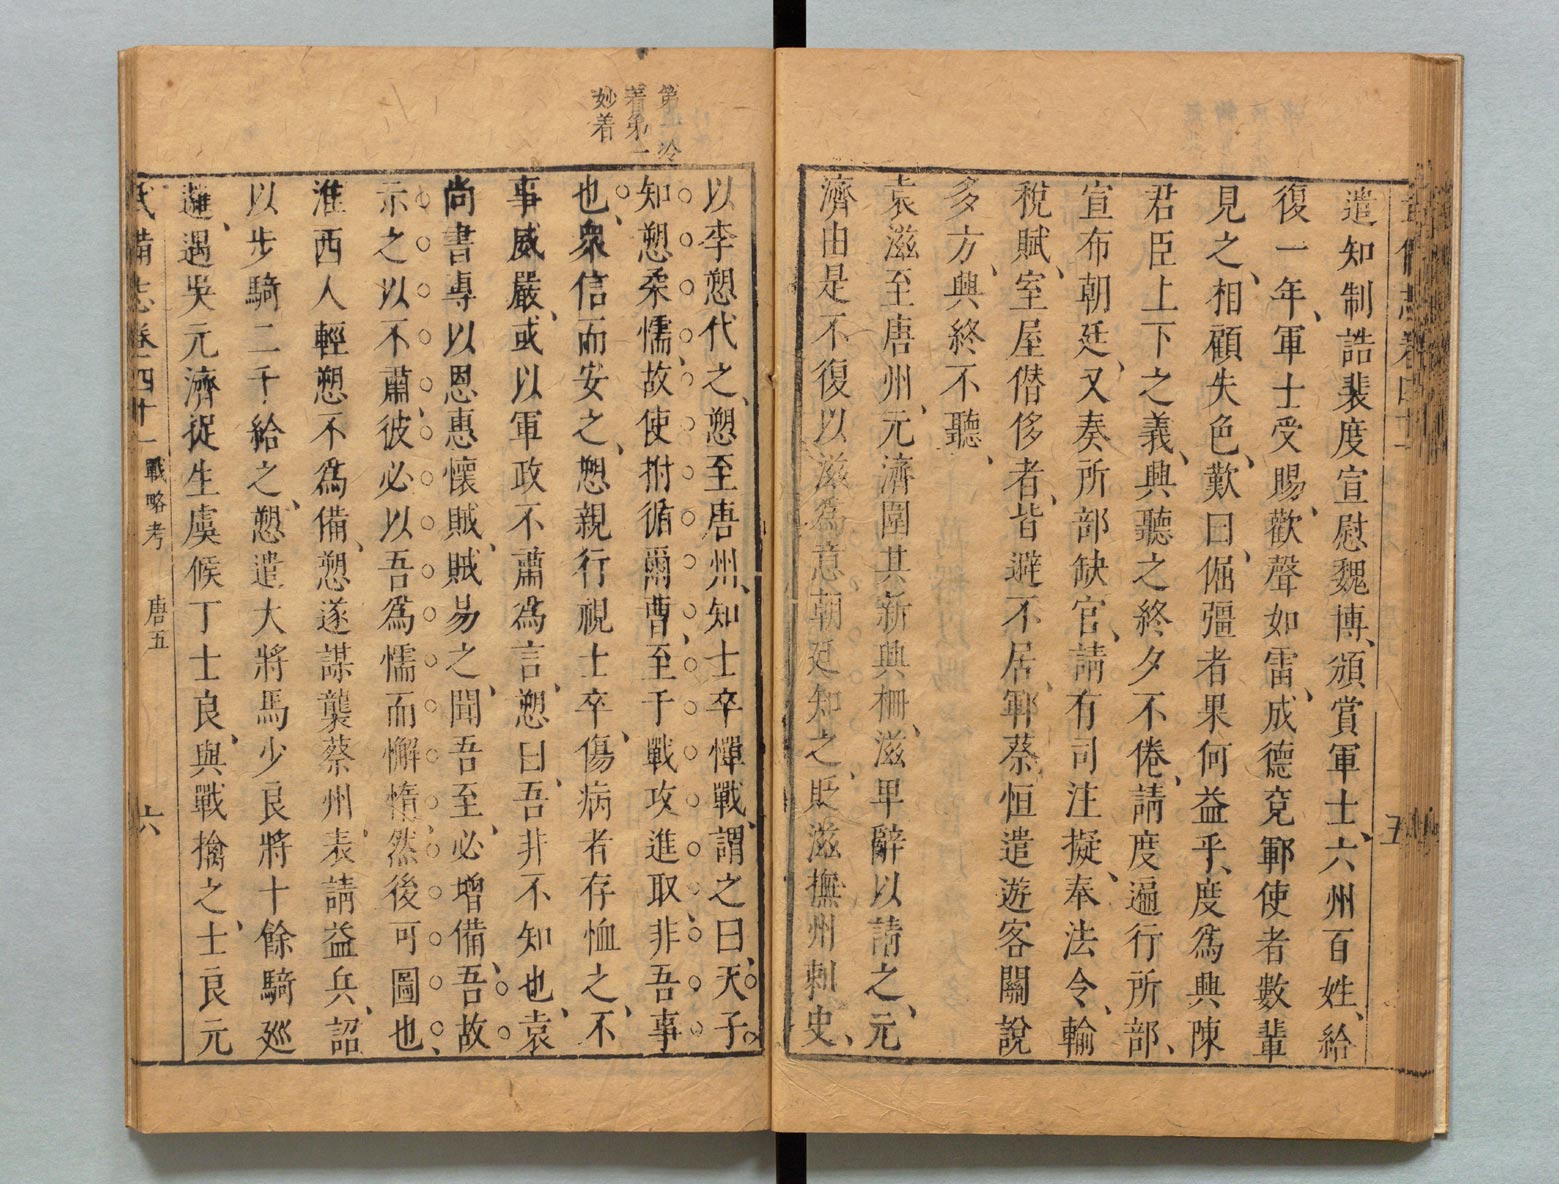 遣知制誥裴度宣慰魏博、頒賞軍士、六州百姓、給
復一年、軍士受賜、歡聲如雷、成德兗鄆使者數輩
見之、相顧失色、歎曰、倔彊者果何益乎、度爲興陳
君臣上下之義、興聽之終夕不倦、請度遍行所部、
宣布朝廷、又奏所部缺官、請有司注擬、奉法令、輸
稅賦、室屋僣侈者、皆避不居、鄆蔡恒遣遊客關說
多方、興終不聽、
袁滋至唐州、元濟圍其新興柵、滋卑辭以請之、元
濟由是不復以滋爲意朝廷知之、貶滋撫州刺史、
五
第
冷
着第一
妙着
以李愬代之、愬至唐州、知士卒憚戰、謂之曰、天子
知愬柔懦、故使拊循爾曹、至于戰攻進取、非吾事
也、衆信而安之、愬親行視士卒、傷病者存恤之、不
事威嚴、或以軍政不肅爲言、愬曰、吾非不知也、袁
尚書專以恩惠懷賊、賊易之、聞吾至、必增備、吾故
示之以不肅彼必以吾爲懦而懈惰、然後可圖也、
淮西人輕愬不爲備、愬遂謀襲蔡州、表請益兵、詔
以步騎二千給之、愬遣大將馬少良將十餘騎巡
邏、遇吳元濟捉生虞候丁士良、與戰擒之、士良元
武備志卷四十一 戰略考 唐五 六